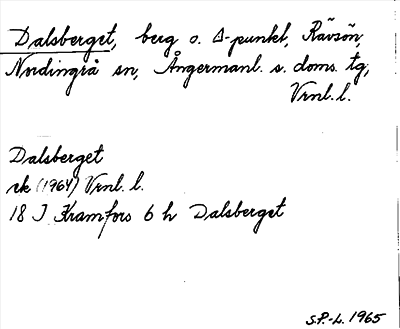 Dalsberget, berg o. Δ-punkt, Rävsön,
Nordingrå sn, Ångermanl. s. doms. tg,
Vrnl. l.
Dalsberget
rk (1964) Vrnl. l.
18 J Kramfors 6 h Dalsberget
S.P.-L. 1965